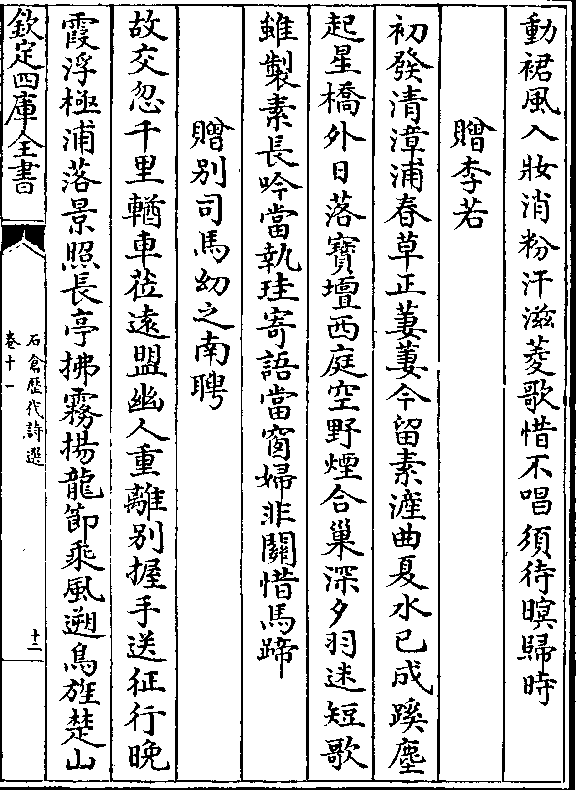 動裙風入妝消粉汗滋菱歌惜不唱須待暝歸時
贈李若
初發清漳浦春草正萋萋今留素滻曲夏水已成蹊塵
起星橋外日落寶壇西庭空野煙合巢深夕羽迷短歌
雖製素長吟當執珪寄語當窗婦非關惜馬蹄
贈別司馬幼之南聘
故交忽千里輶車莅遠盟幽人重離別握手送征行晚
霞浮極浦落景照長亭拂霧揚龍節乘風遡鳥旌楚山
欽定四庫全書
石倉歷代詩選
卷十一
十二